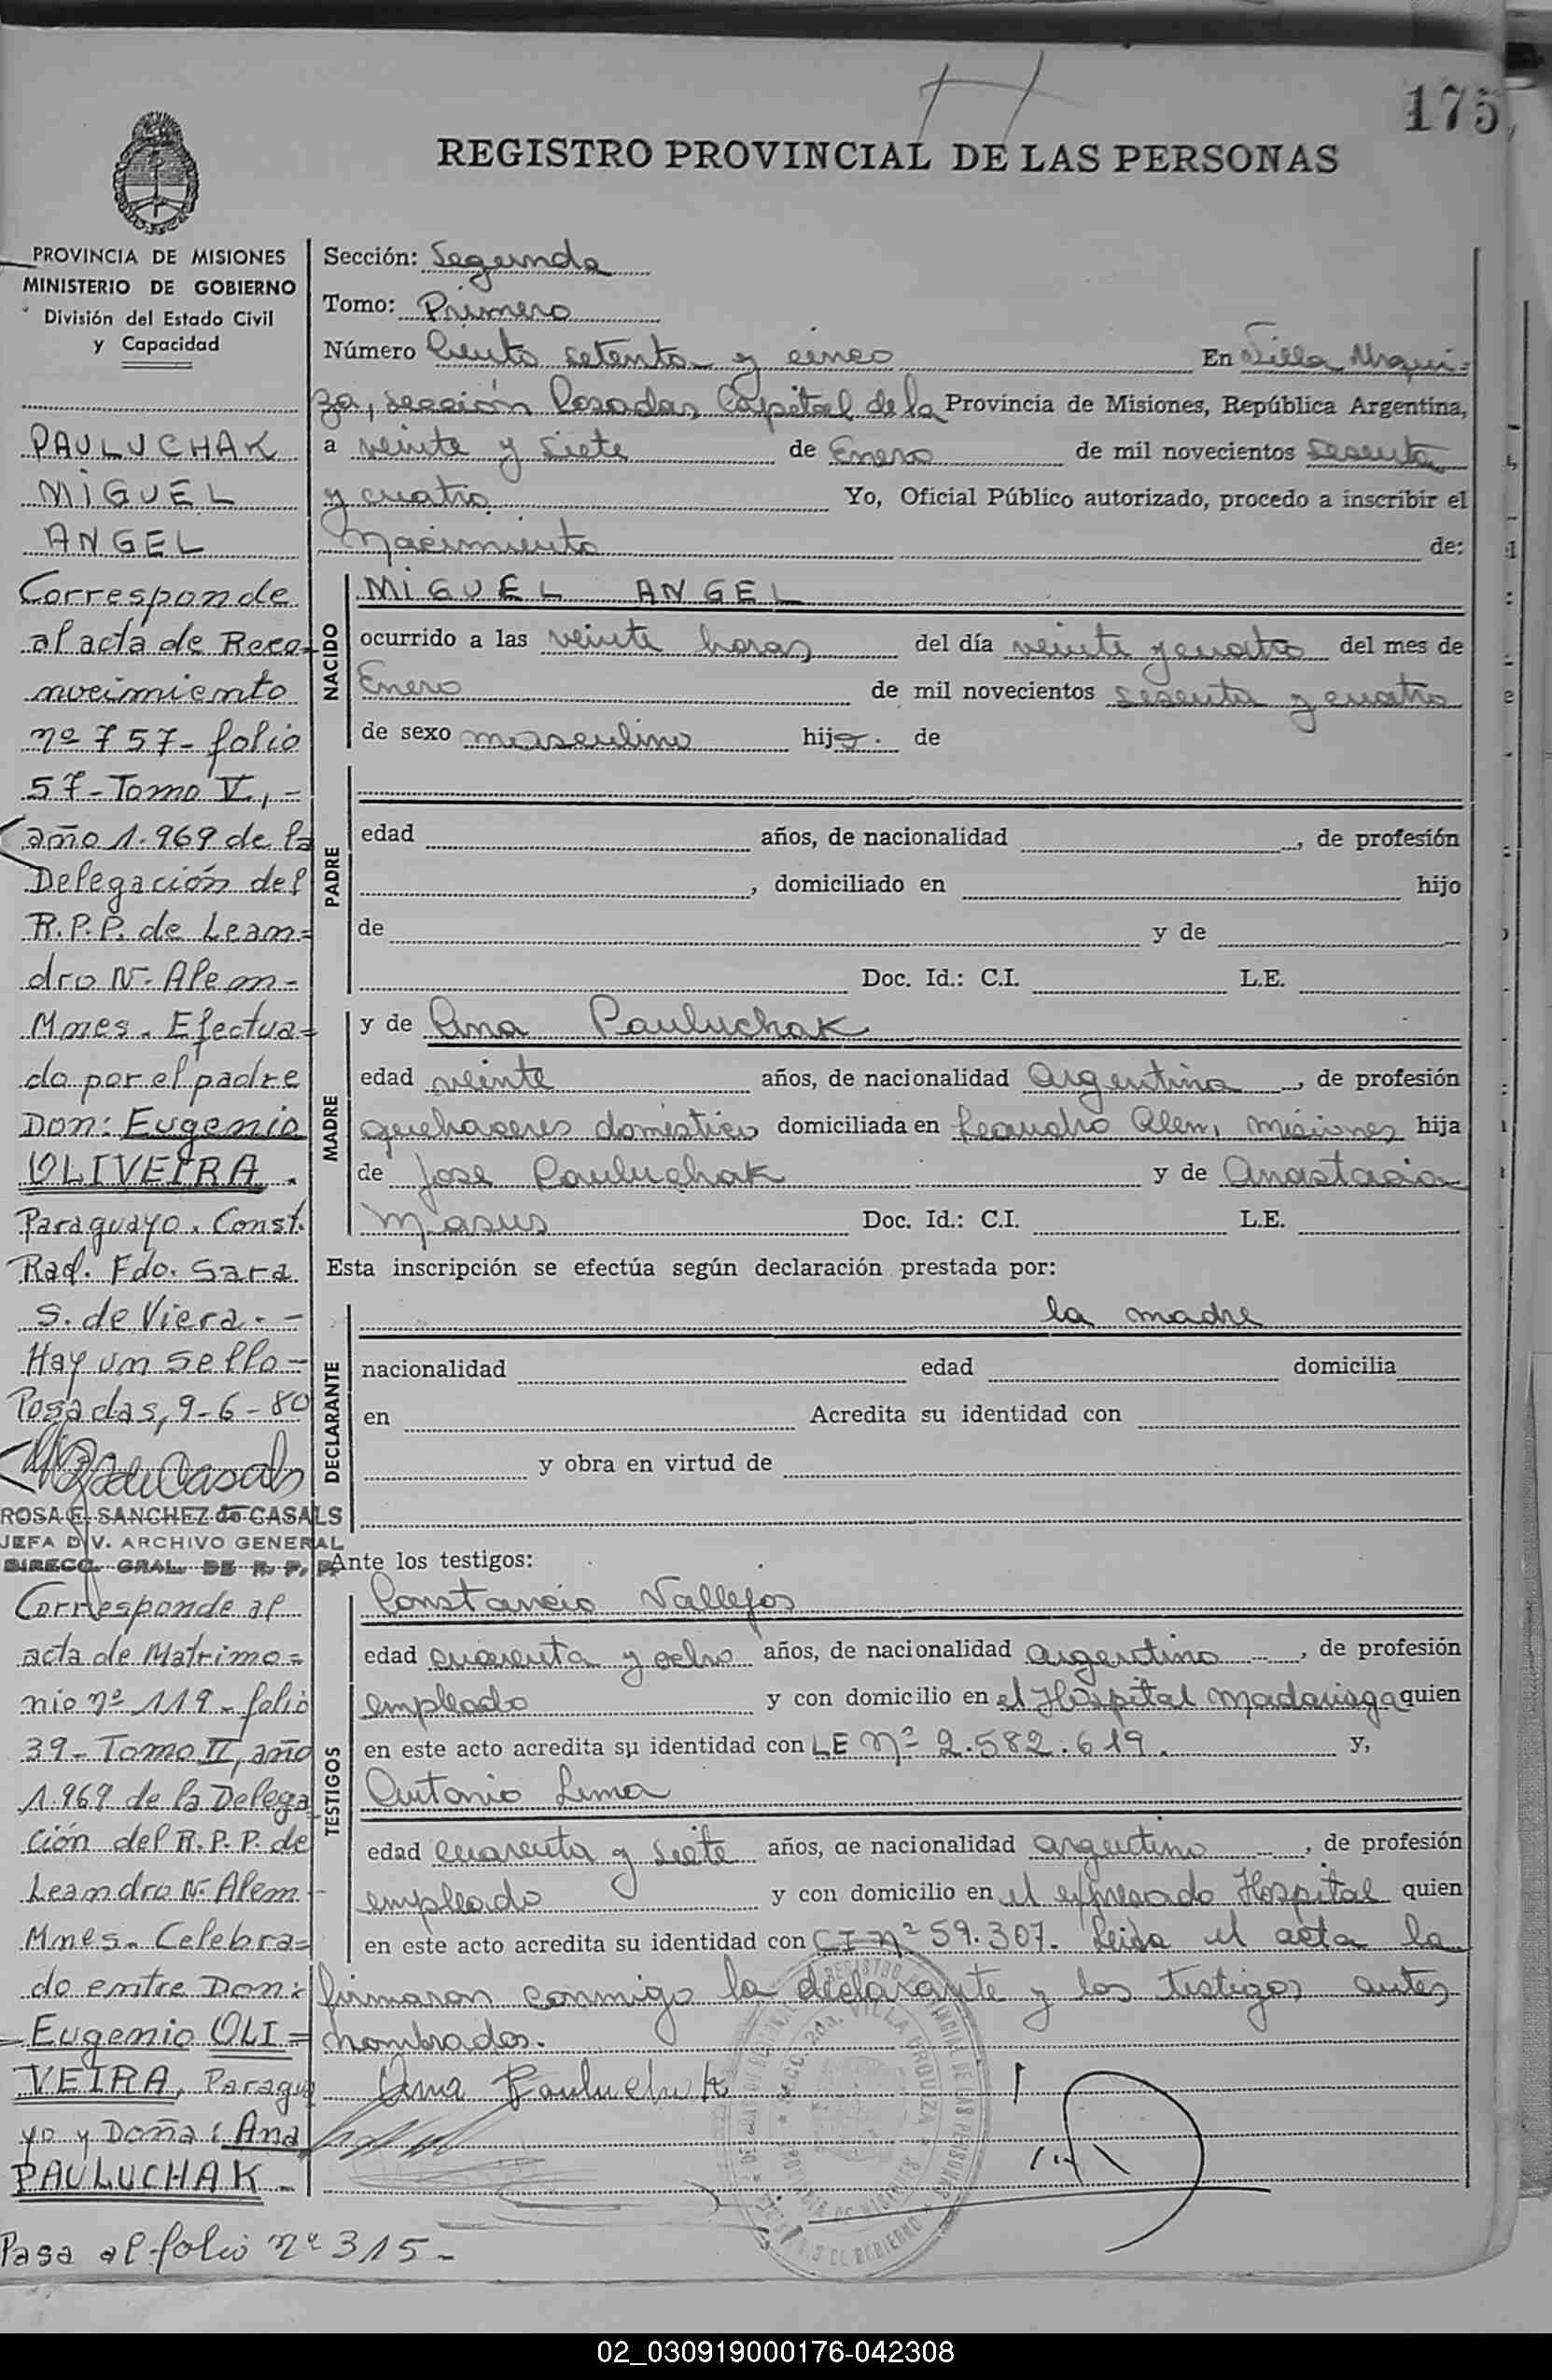 175
REGISTRO PROVINCIAL DE LAS PERSONAS
PROVINCIA DE MISIONES
MINISTERIO DE GOBIERNO
División del Estado Civil
y Capacidad
PAULUCHAK
MIGUEL
ANGEL
Corresponde
al acta de Reco-
nocimiento
nº 757- folio
57- Tomo V,-
año 1.969 de la
Delegación del
R.P.P. de Lean=
dro N. Alem-
Mnes. Efectua=
do por el padre
Don: Eugenio
OLIVEIRA.
Paraguayo. Const.
Rad. Fdo. Sara
S. de Viera.-
Hay un sello-
Posadas, 9-6-80
ROSA E. SANCHEZ de CASALS
JEFA DIV. ARCHIVO GENERAL
DIRECC. GRAL. DE R. P. P.
Corresponde al
acta de Matrimo=
nio nº 119- folio
39- Tomo II, año
1.969 de la Delega
ción del R.P.P. de
Leandro N. Alem-
Mnes. Celebra=
do entre Don:
Eugenio OLI=
VEIRA, Paragua
yo y Doña: Ana
PAULUCHAK-
Pasa al folio nº 315-
Sección: Segunda
Tomo: Primero
Número Ciento setenta y cinco En Villa Urqui=
za, sección Posadas, Capital de la Provincia de Misiones, República Argentina,
a veinte y siete de Enero de mil novecientos sesenta
y cuatro Yo, Oficial Público autorizado, procedo a inscribir el
Nacimiento de:
NACIDO
MIGUEL ANGEL
ocurrido a las veinte horas del día veinte y cuatro del mes de
Enero de mil novecientos sesenta y cuatro
de sexo masculino hijo. de
PADRE
edad años, de nacionalidad , de profesión
, domiciliado en hijo
de y de
Doc. Id.: C.I. L.E.
MADRE
y de Ana Pauluchak
edad veinte años, de nacionalidad Argentina , de profesión
quehaceres domésticos domiciliada en Leandro Alem, Misiones hija
de Jose Pauluchak y de Anastacia
Masus Doc. Id.: C.I. L.E.
Esta inscripción se efectúa según declaración prestada por:
DECLARANTE
la madre
nacionalidad edad domicilia
en Acredita su identidad con
y obra en virtud de
Ante los testigos:
TESTIGOS
Constancio Vallejos
edad cuarenta y ocho años, de nacionalidad argentino , de profesión
empleado y con domicilio en el Hospital Madariaga quien
en este acto acredita su identidad con LE Nº 2.582.619. y,
Antonio Lima
edad cuarenta y siete años, de nacionalidad argentino , de profesión
empleado y con domicilio en el expresado Hospital quien
en este acto acredita su identidad con CI Nº 59.307. Leida el acta la
firmaron conmigo la declarante y los testigos antes
nombrados.
Ana Pauluchak
02_030919000176-042308